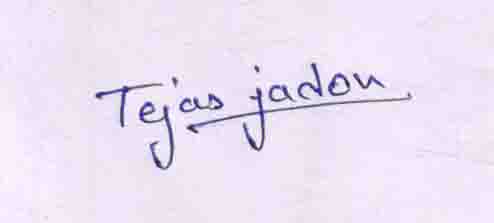 Tejas jadon